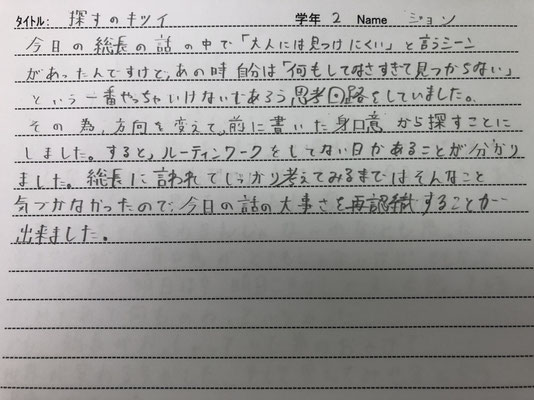 タイトル: 探すのキツイ 学年 2 Name ジョン
今日の総長の話の中で「大人には見つけにくい」と言うシーン
があったんですけど、あの時自分は「何もしてなさすぎて見つからない」
という一番やっちゃいけないであろう思考回路をしていました。
その為、方向を変えて、前に書いた身口意から探すことに
しました。すると、ルーティンワークをしてない日があることが分かり
ました。総長に言われてしっかり考えてみるまではそんなこと
気づかなかったので、今日の話の大事さを再認識することが
出来ました。